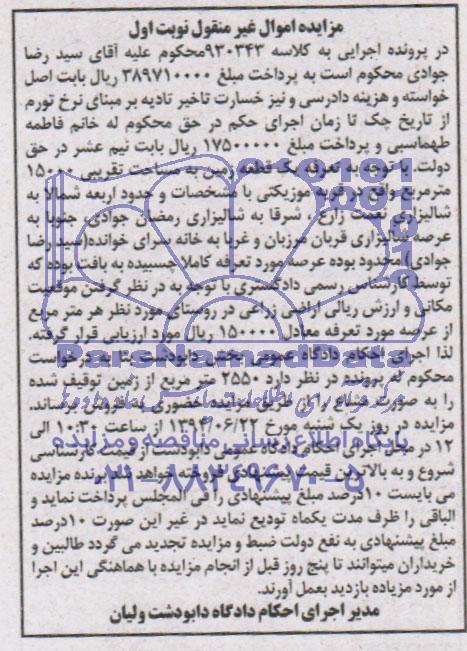 مزایده اموال غیر منقول نوبت اول
در پرونده اجرایی به کلاسه ۹۳۰۳۴۳محکوم علیه آقای سید رضا
جوادی محکوم است به پرداخت مبلغ ۳۸۹۷۱۰۰۰۰ ریال بابت اصل
خواسته و هزینه دادرسی و نیز خسارت تاخیر تادیه بر مبنای نرخ تورم
از تاریخ چک تا زمان اجرای حکم در حق محکوم له خانم فاطمه
طهماسبی و پرداخت مبلغ ۱۷۵۰۰۰۰۰ ریال بابت نیم عشر در حق
دولت، با توجه به تعرفه یک قطعه زمین به مساحت تقریبی ۱۵۰۰۰
مترمربع واقع در قریه موزیکتی با مشخصات و حدود اربعه شمالا به
شالیزاری نعمت زارع ، شرقا به شالیزاری رمضان جوادی، جنوبا به
عرصه شالیزاری قربان مرزبان و غربا به خانه سرای خوانده(سید رضا
جوادی) محدود بوده عرصه مورد تعرفه کاملا چسبیده به بافت بوده که
توسط کارشناس رسمی دادگستری با توجه به در نظر گرفتن موقعیت
مکانی و ارزش ریالی اراضی زراعی در روستای مورد نظر هر متر مربع
از عرصه مورد تعرفه معادل ۱۵۰۰۰۰ ریال مورد ارزیابی قرار گرفته،
لذا اجرای احکام دادگاه عمومی بخش دابودشت بنا به درخواست
محکوم له پرونده در نظر دارد ۲۵۵۰ متر مربع از زمین توقیف شده
را به صورت مشاع را از طریق مزایده حضوری به فروش برساند.
مزایده در روز یک شنبه مورخ ۱۳۹۴/۰۶/۲۲ از ساعت ۱۰:۳۰ الی
۱۲ در محل اجرای احکام دادگاه عمومی دابودشت از قیمت کارشناسی
شروع و به بالاترین قیمت پیشنهادی فروخته خواهد شد برنده مزایده
می بایست ۱۰درصد مبلغ پیشنهادی را فی المجلس پرداخت نماید و
الباقی را ظرف مدت یکماه تودیع نماید در غیر این صورت ۱۰درصد
مبلغ پیشنهادی به نفع دولت ضبط و مزایده تجدید می گردد طالبین و
خریداران میتوانند تا پنج روز قبل از انجام مزایده با هماهنگی این اجرا
از مورد مزیاده بازدید بعمل آورند.
مدیر اجرای احکام دادگاه دابودشت ولیان
ParsNamadData
پایگاه اطلاع رسانی مناقصه و مزایده
۰۲۱-۸۸۳۴۹۶۷۰-۵